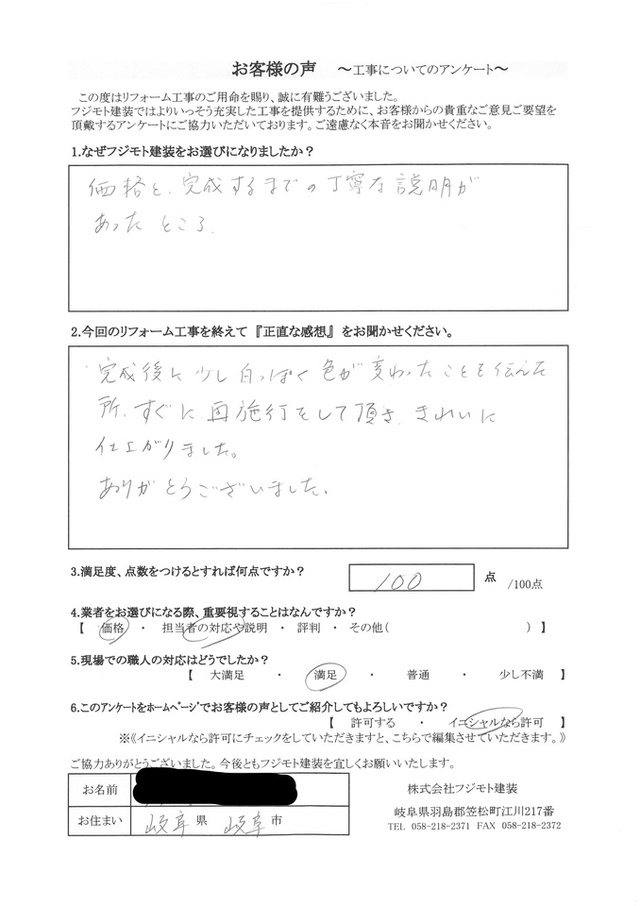 お客様の声 ～工事についてのアンケート～
この度はリフォーム工事のご用命を賜り、誠に有難うございました。
フジモト建装ではよりいっそう充実した工事を提供するために、お客様からの貴重なご意見ご要望を
頂戴するアンケートにご協力いただいております。ご遠慮なく本音をお聞かせください。
1.なぜフジモト建装をお選びになりましたか？
価格と、完成するまでの丁寧な説明が
あったところ。
2.今回のリフォーム工事を終えて『正直な感想』をお聞かせください。
完成後に少し白っぽく色が変わったことを伝えた
所、すぐに再施行をして頂き、きれいに
仕上がりました。
ありがとうございました。
3.満足度、点数をつけるとすれば何点ですか？ 100 点 /100点
4.業者をお選びになる際、重要視することはなんですか？
【 価格 ・ 担当者の対応や説明 ・ 評判 ・ その他( ) 】
5.現場での職人の対応はどうでしたか？
【 大満足 ・ 満足 ・ 普通 ・ 少し不満 】
6.このアンケートをホームページでお客様の声としてご紹介してもよろしいですか？
【 許可する ・ イニシャルなら許可 】
※《イニシャルなら許可にチェックをしていただきますと、こちらで編集させていただきます。》
ご協力ありがとうございました。今後ともフジモト建装を宜しくお願いいたします。
お名前
お住まい 岐阜 県 岐阜 市
株式会社フジモト建装
岐阜県羽島郡笠松町江川217番
TEL 058-218-2371 FAX 058-218-2372